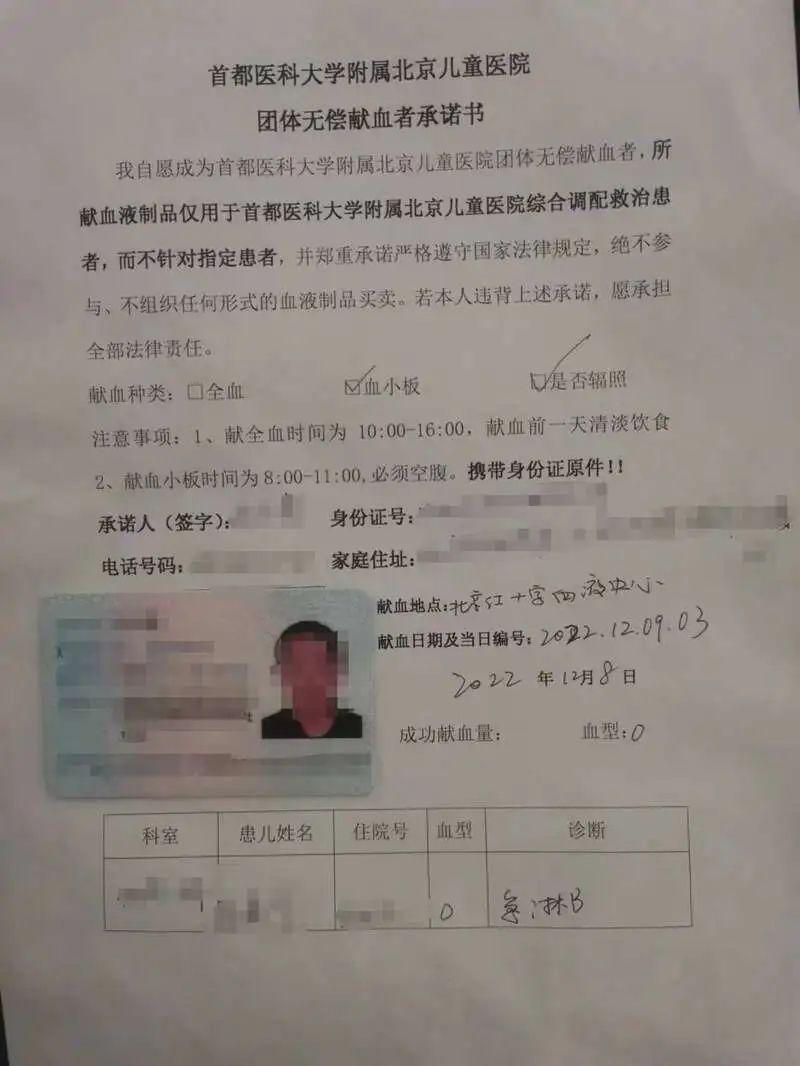 首都医科大学附属北京儿童医院
团体无偿献血者承诺书
我自愿成为首都医科大学附属北京儿童医院团体无偿献血者，所
献血液制品仅用于首都医科大学附属北京儿童医院综合调配救治患
者，而不针对指定患者，并郑重承诺严格遵守国家法律规定，绝不参
与、不组织任何形式的血液制品买卖。若本人违背上述承诺，愿承担
全部法律责任。
献血种类：□全血 ☑血小板 ☑是否辐照
注意事项：1、献全血时间为 10:00-16:00，献血前一天清淡饮食
2、献血小板时间为8:00-11:00,必须空腹。携带身份证原件！！
承诺人（签字）： 身份证号：
电话号码： 家庭住址：
献血地点：北京红十字血液中心
献血日期及当日编号：2022.12.09.03
2022 年 12月8日
成功献血量： 血型：O
科室 患儿姓名 住院号 血型 诊断
O 急淋B